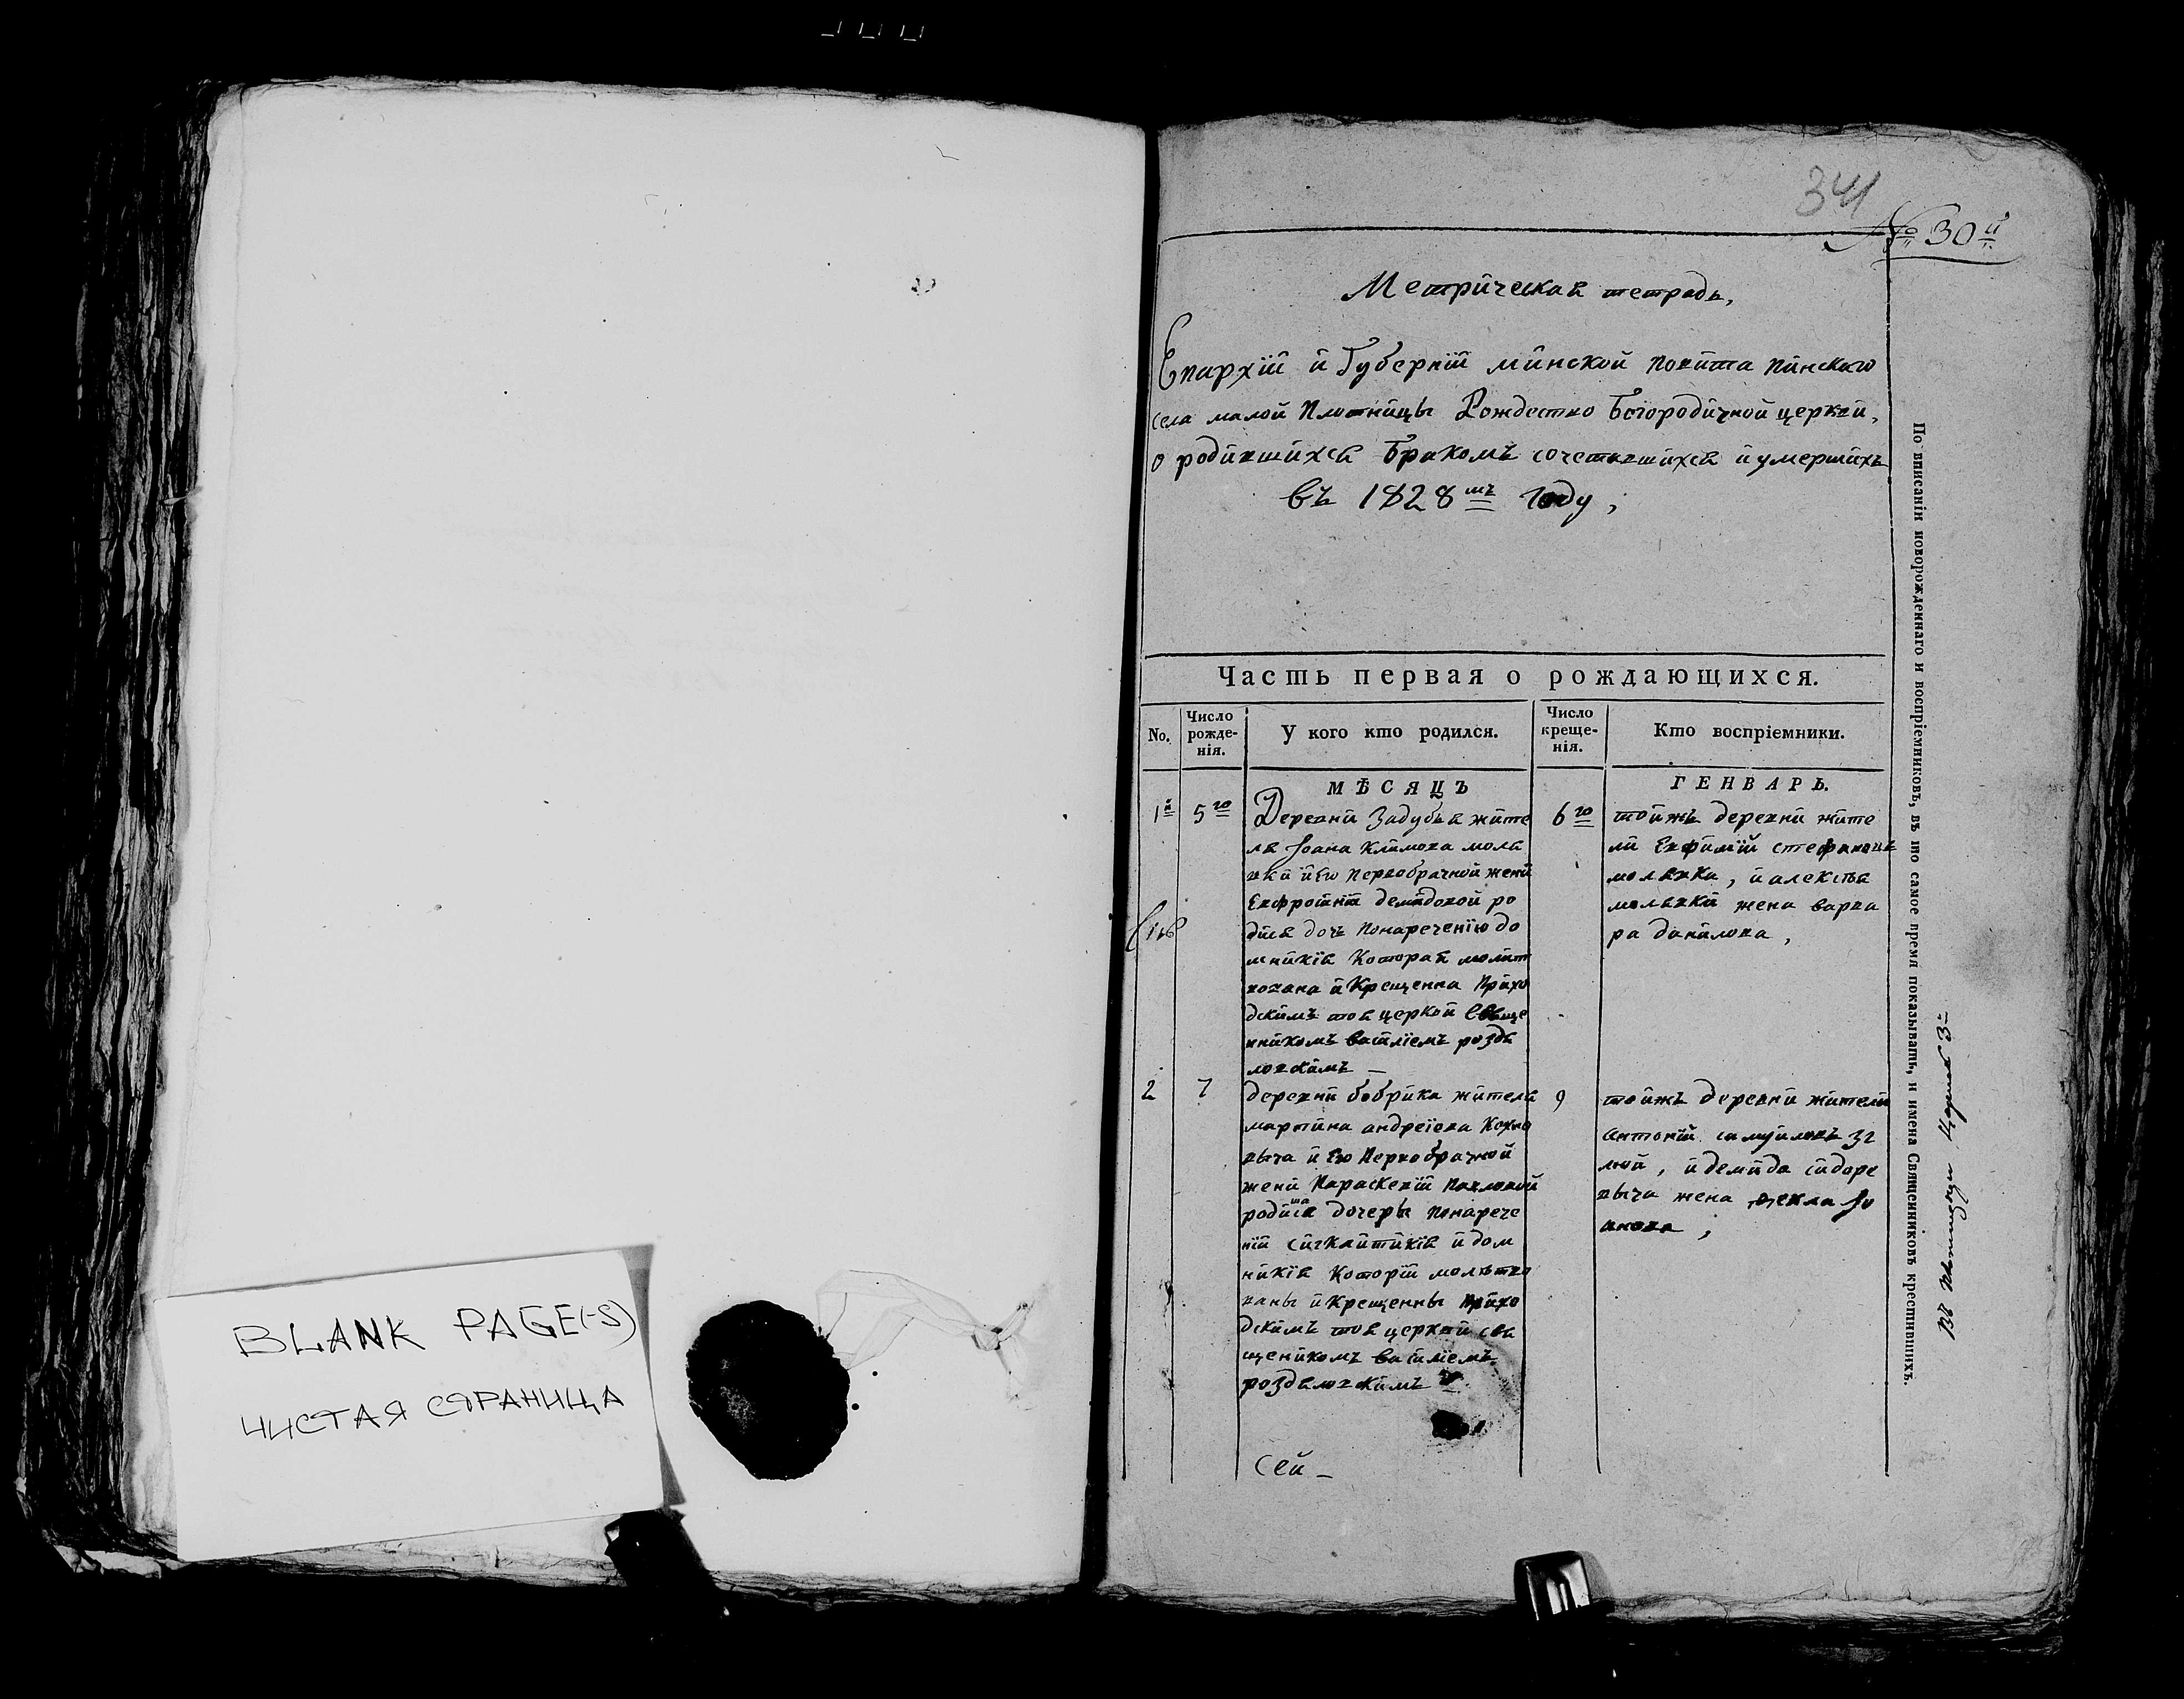 BLANK PAGE(-S)
ЧИСТАЯ СТРАНИЦА
341
№ 30й
Метрическая тетрадь,
Епархїй й Губернїй минской повѝта пинского
села малой Плотницы Рождество Богородичной церквй,
о родившихся бракомъ сочетавшихся й умершихъ
въ 1828мъ году,
Часть первая о рождающихся.
No.
Число рожде-нія.
У кого кто родился.
Число креще-нія.
Кто воспріемники.
МѢСЯЦЪ
ГЕНВАРЬ.
1й
5го
Деревни Задубья жите
ля Іоана Климова моля
вки й Его Первобрачной жени
Евфросинїй демидовой ро
дися дочь Понареченїю до
мникїя Которая молит
вована й Крещенна Прихо
дскимъ тоя церквй Свяще
нникомъ василїемъ розвя
ловскимъ
6го
тойжъ деревни жите
ли Евфимїй стефановъ
молявка, й алексѣя
молявки жена варва
ра данилова,
2
7
деревни бобрика жителя
мартина андреїева Кохно
выча й Его Первобрачной
жени Параскевїй Павловой
родися дочеры Понарече
нїй й дом
никїя Которїй молытво
ваны й Крещенны прихо
дскимъ тоя церквй свя
щеникомъ василїемъ
9
тойжъ деревни жители
Антонїй самуиловъ
й демида сидоре
выча жена текла Іо
анова,
Сей
По вписаніи новорожденнаго и воспріемниковъ, въ то самое время показывать, и имена Священниковъ крестившихъ.